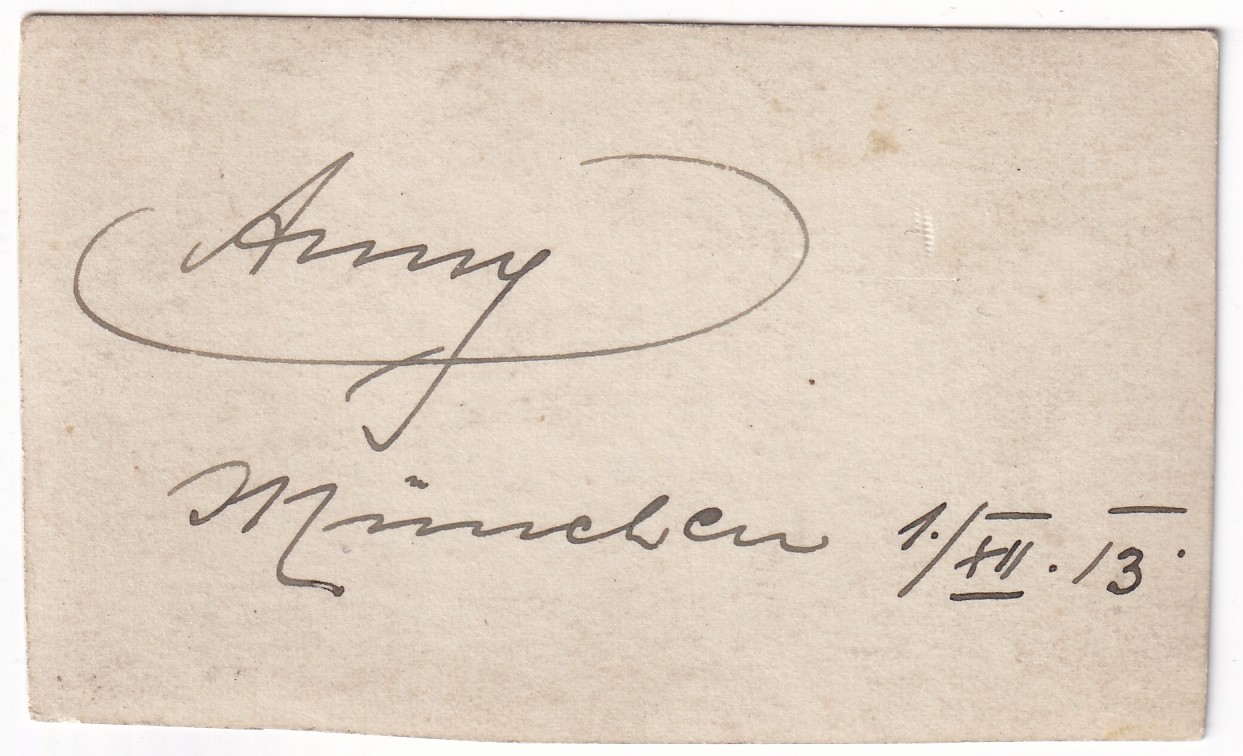 Anny
München 1./XII. 13.